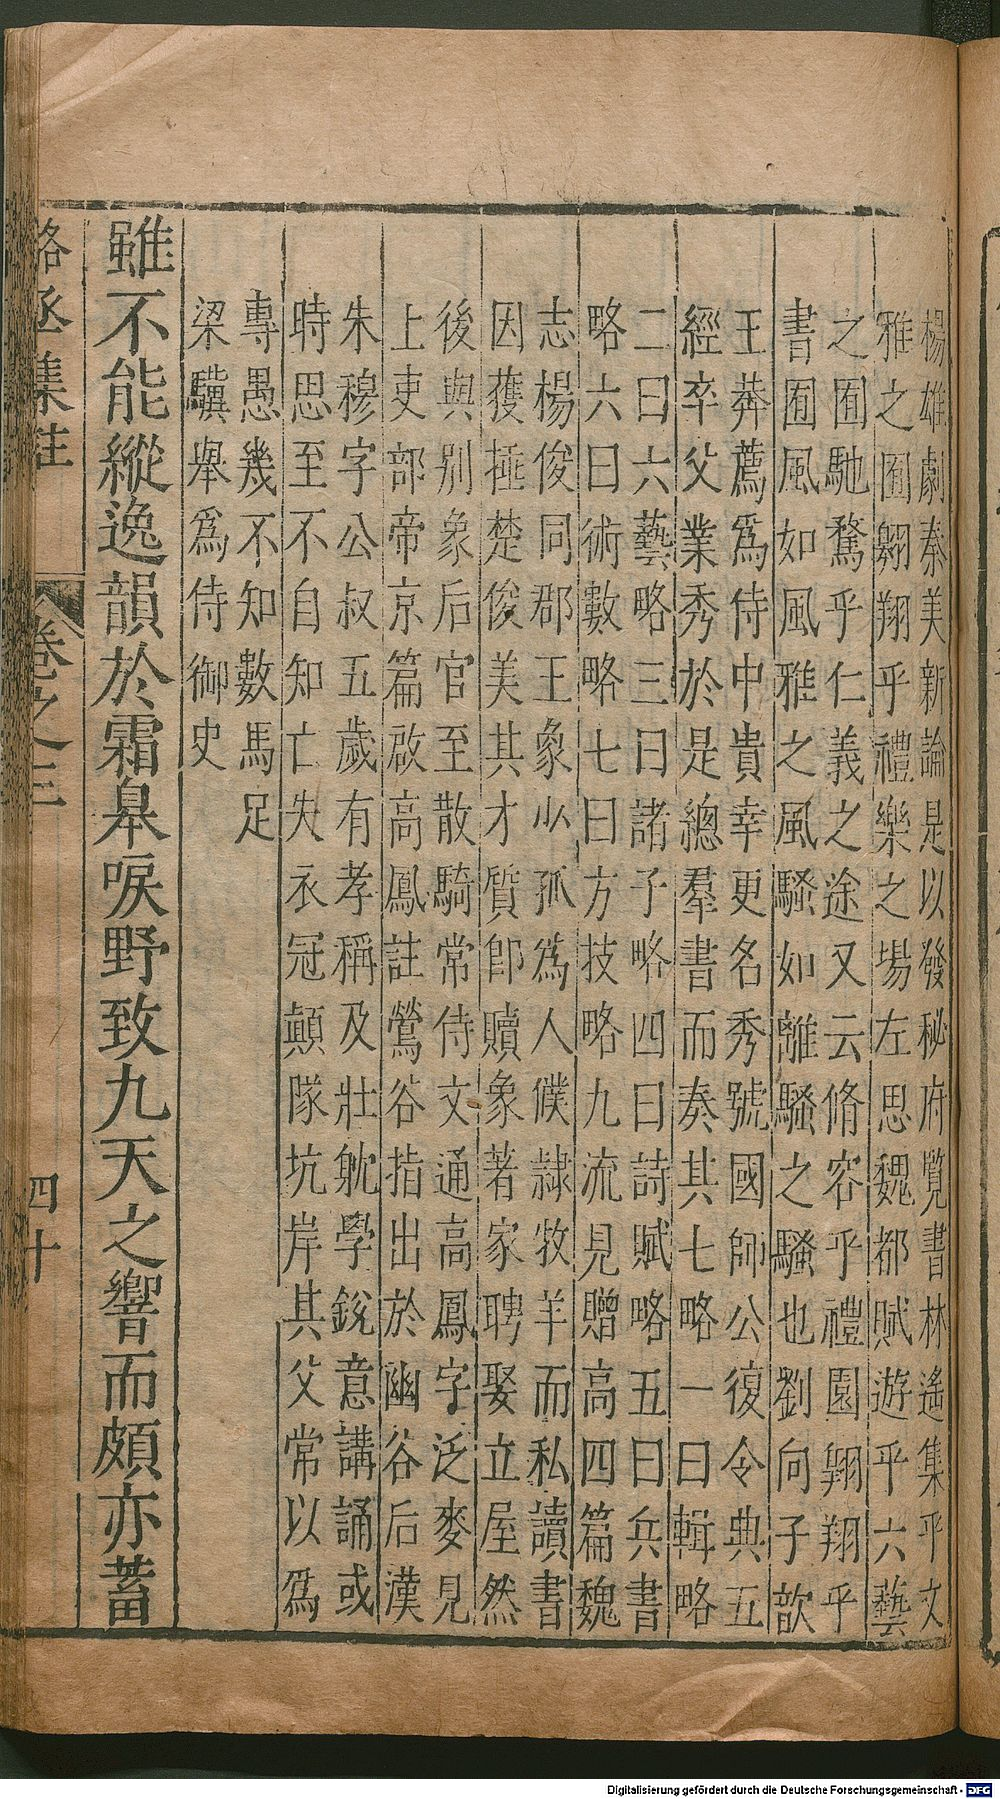 楊雄劇秦美新論是以發秘府覽書林遙集乎文
雅之囿翺翔乎禮樂之場左思魏都賦遊乎六藝
之囿馳騖乎仁義之途又云脩容乎禮園翺翔乎
書囿風如風雅之風騷如離騷之騷也劉向子歆
王莽薦爲侍中貴幸更名秀號國師公復令典五
經卒父業秀於是總羣書而奏其七略一曰輯略
二曰六藝略三曰諸子略四曰詩賦略五曰兵書
略六曰術數略七曰方技略九流見贈高四篇魏
志楊俊同郡王象少孤爲人僕隷牧羊而私讀書
因獲捶楚俊美其才質卽贖象著家聘娶立屋然
後與别象后官至散騎常侍文通高鳳字泛麥見
上吏部帝京篇啟高鳳註鶯谷指出於幽谷后漢
朱穆字公叔五歲有孝稱及壯躭學銳意講誦或
時思至不自知亡失衣冠顛隊坑岸其父常以爲
專愚幾不知數馬足
梁驥舉爲侍御史
雖不能縱逸韻於霜臯唳野致九天之響而頗亦蓄
駱丞集註 卷之三 四十
Digitalisierung gefördert durch die Deutsche Forschungsgemeinschaft - DFG